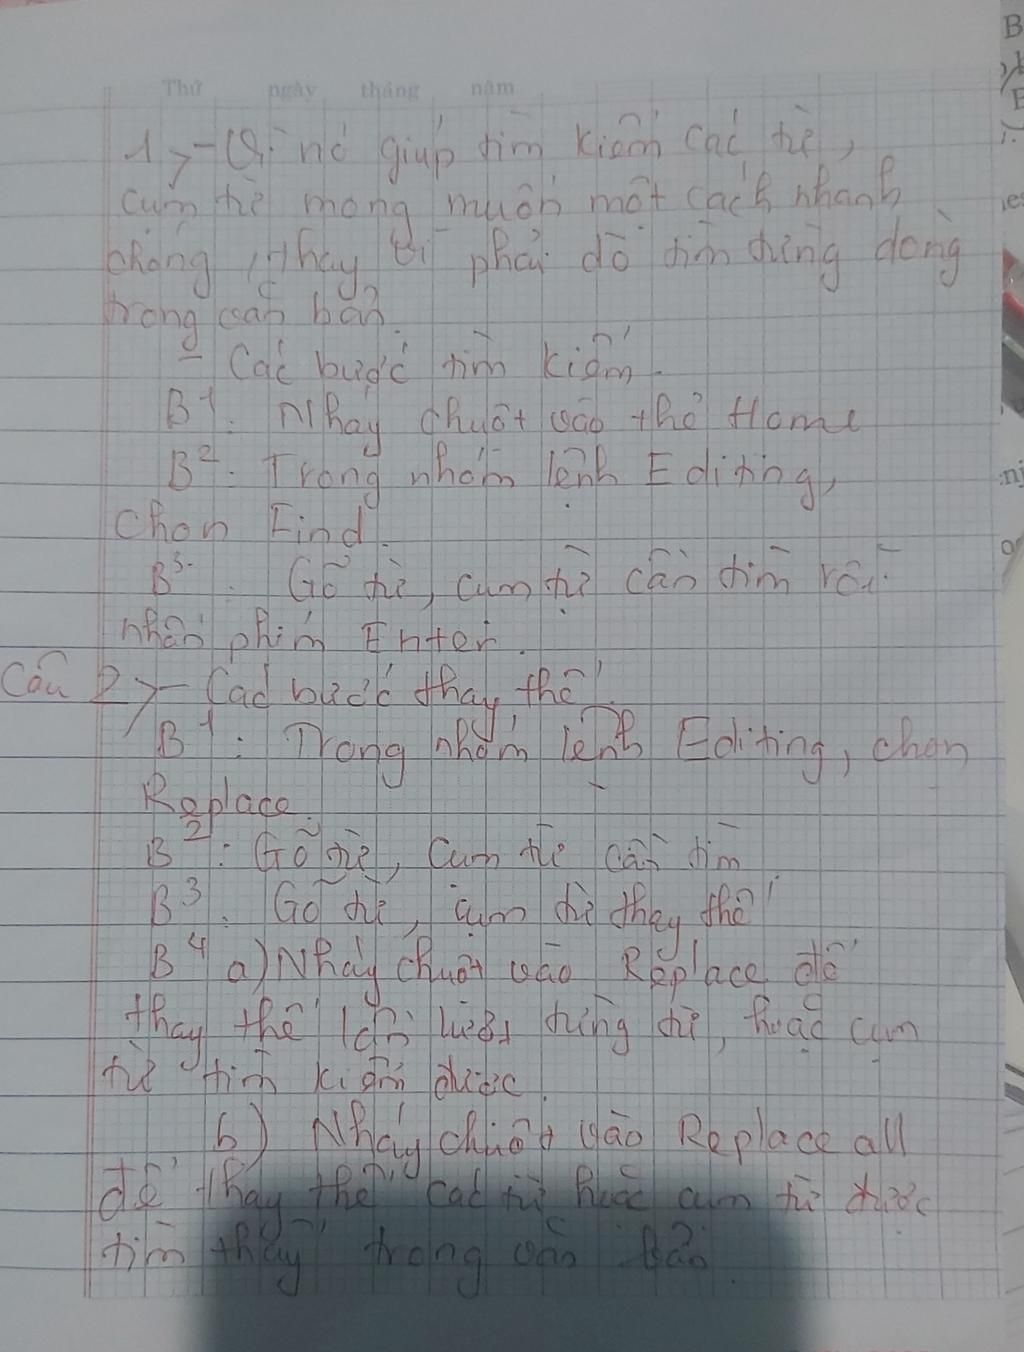 Thứ ngày tháng năm
1, - Vì nó giúp tìm kiếm các từ,
cụm từ mong muốn một cách nhanh
chóng, thay vì phải dò tìm từng dòng
trong văn bản.
- Các bước tìm kiếm.
B1: Nháy chuột vào thẻ Home
B2: Trong nhóm lệnh Editing,
chọn Find.
B3: Gõ từ, cụm từ cần tìm rồi
nhấn phím Enter.
Câu 2, - Các bước thay thế.
B1: Trong nhóm lệnh Editing, chọn
Replace.
B2: Gõ từ, cụm từ cần tìm
B3: Gõ từ, cụm từ thay thế
B4 a) Nháy chuột vào Replace để
thay thế lần lượt từng từ, hoặc cụm
từ tìm kiếm được.
b) Nháy chuột vào Replace all
để thay thế các từ hoặc cụm từ được
tìm thấy trong văn bản.